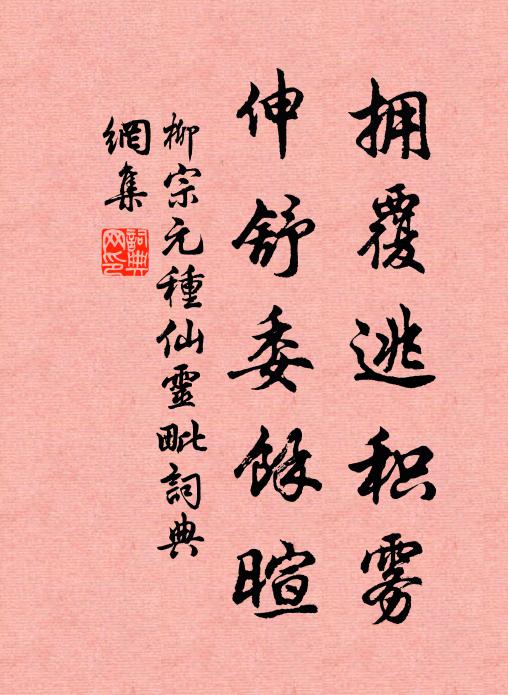 拥覆逃积雾
伸舒委餘暄
柳宗元種仙靈毗詞典
網集
詞典網印